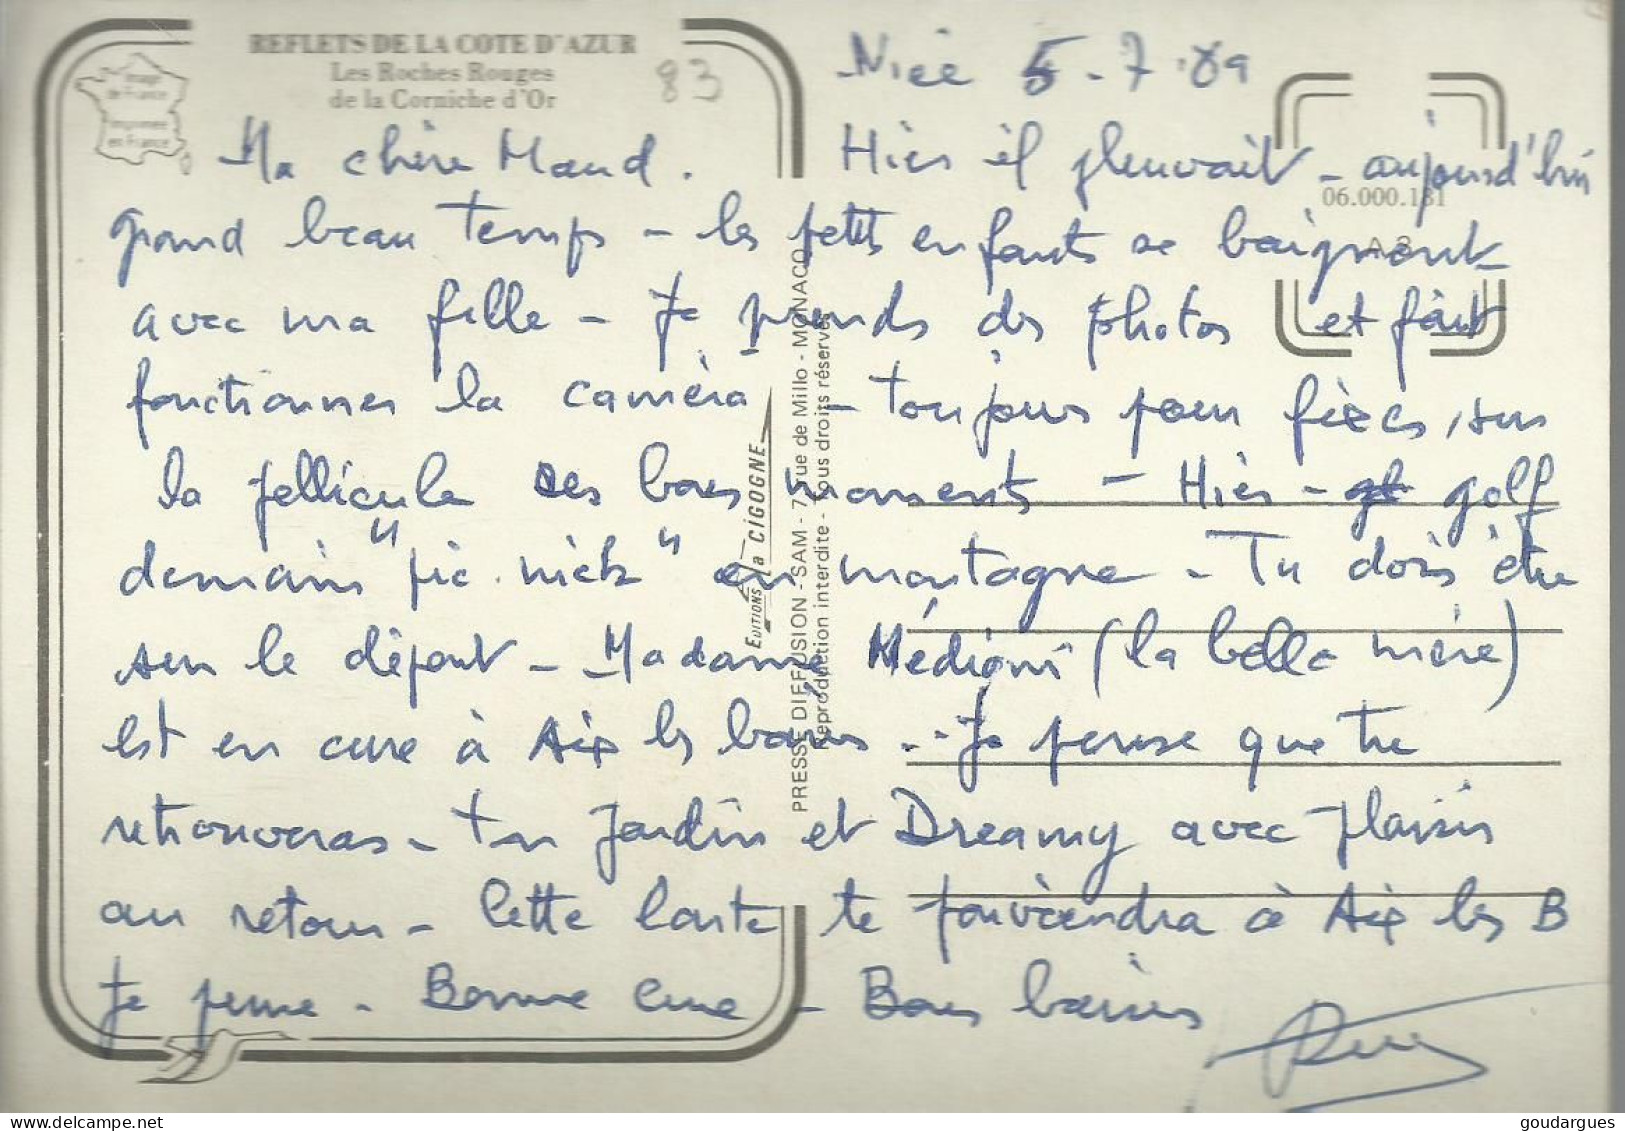 REFLETS DE LA COTE D'AZUR
Les Roches Rouges
de la Corniche d'Or
83
Image
de France
Imprimée
en France
Nice 5-7-89
06.000.131
A 3
Ma chère Maud. Hier il pleuvait - aujourd'hui
grand beau temps - les petits enfants se baignent
avec ma fille - Je prends des photos et fait
fonctionner la caméra - toujours pour fixer, sur
la pellicule ces bons moments - Hier - golf
demain "pic. nick" en montagne - Tu dois être
sur le départ - Madame Médioni (la belle mère)
est en cure à Aix les bains.. Je pense que tu
retrouveras - ton jardin et Dreamy avec plaisir
au retour - Cette carte te parviendra à Aix les B
Je pense - Bonne cure - Bons baisers
Editions La CIGOGNE
PRESSE DIFFUSION - SAM - 7, rue de Millo - MONACO
Reproduction interdite - Tous droits réservés
goudargues @ delcampe.net